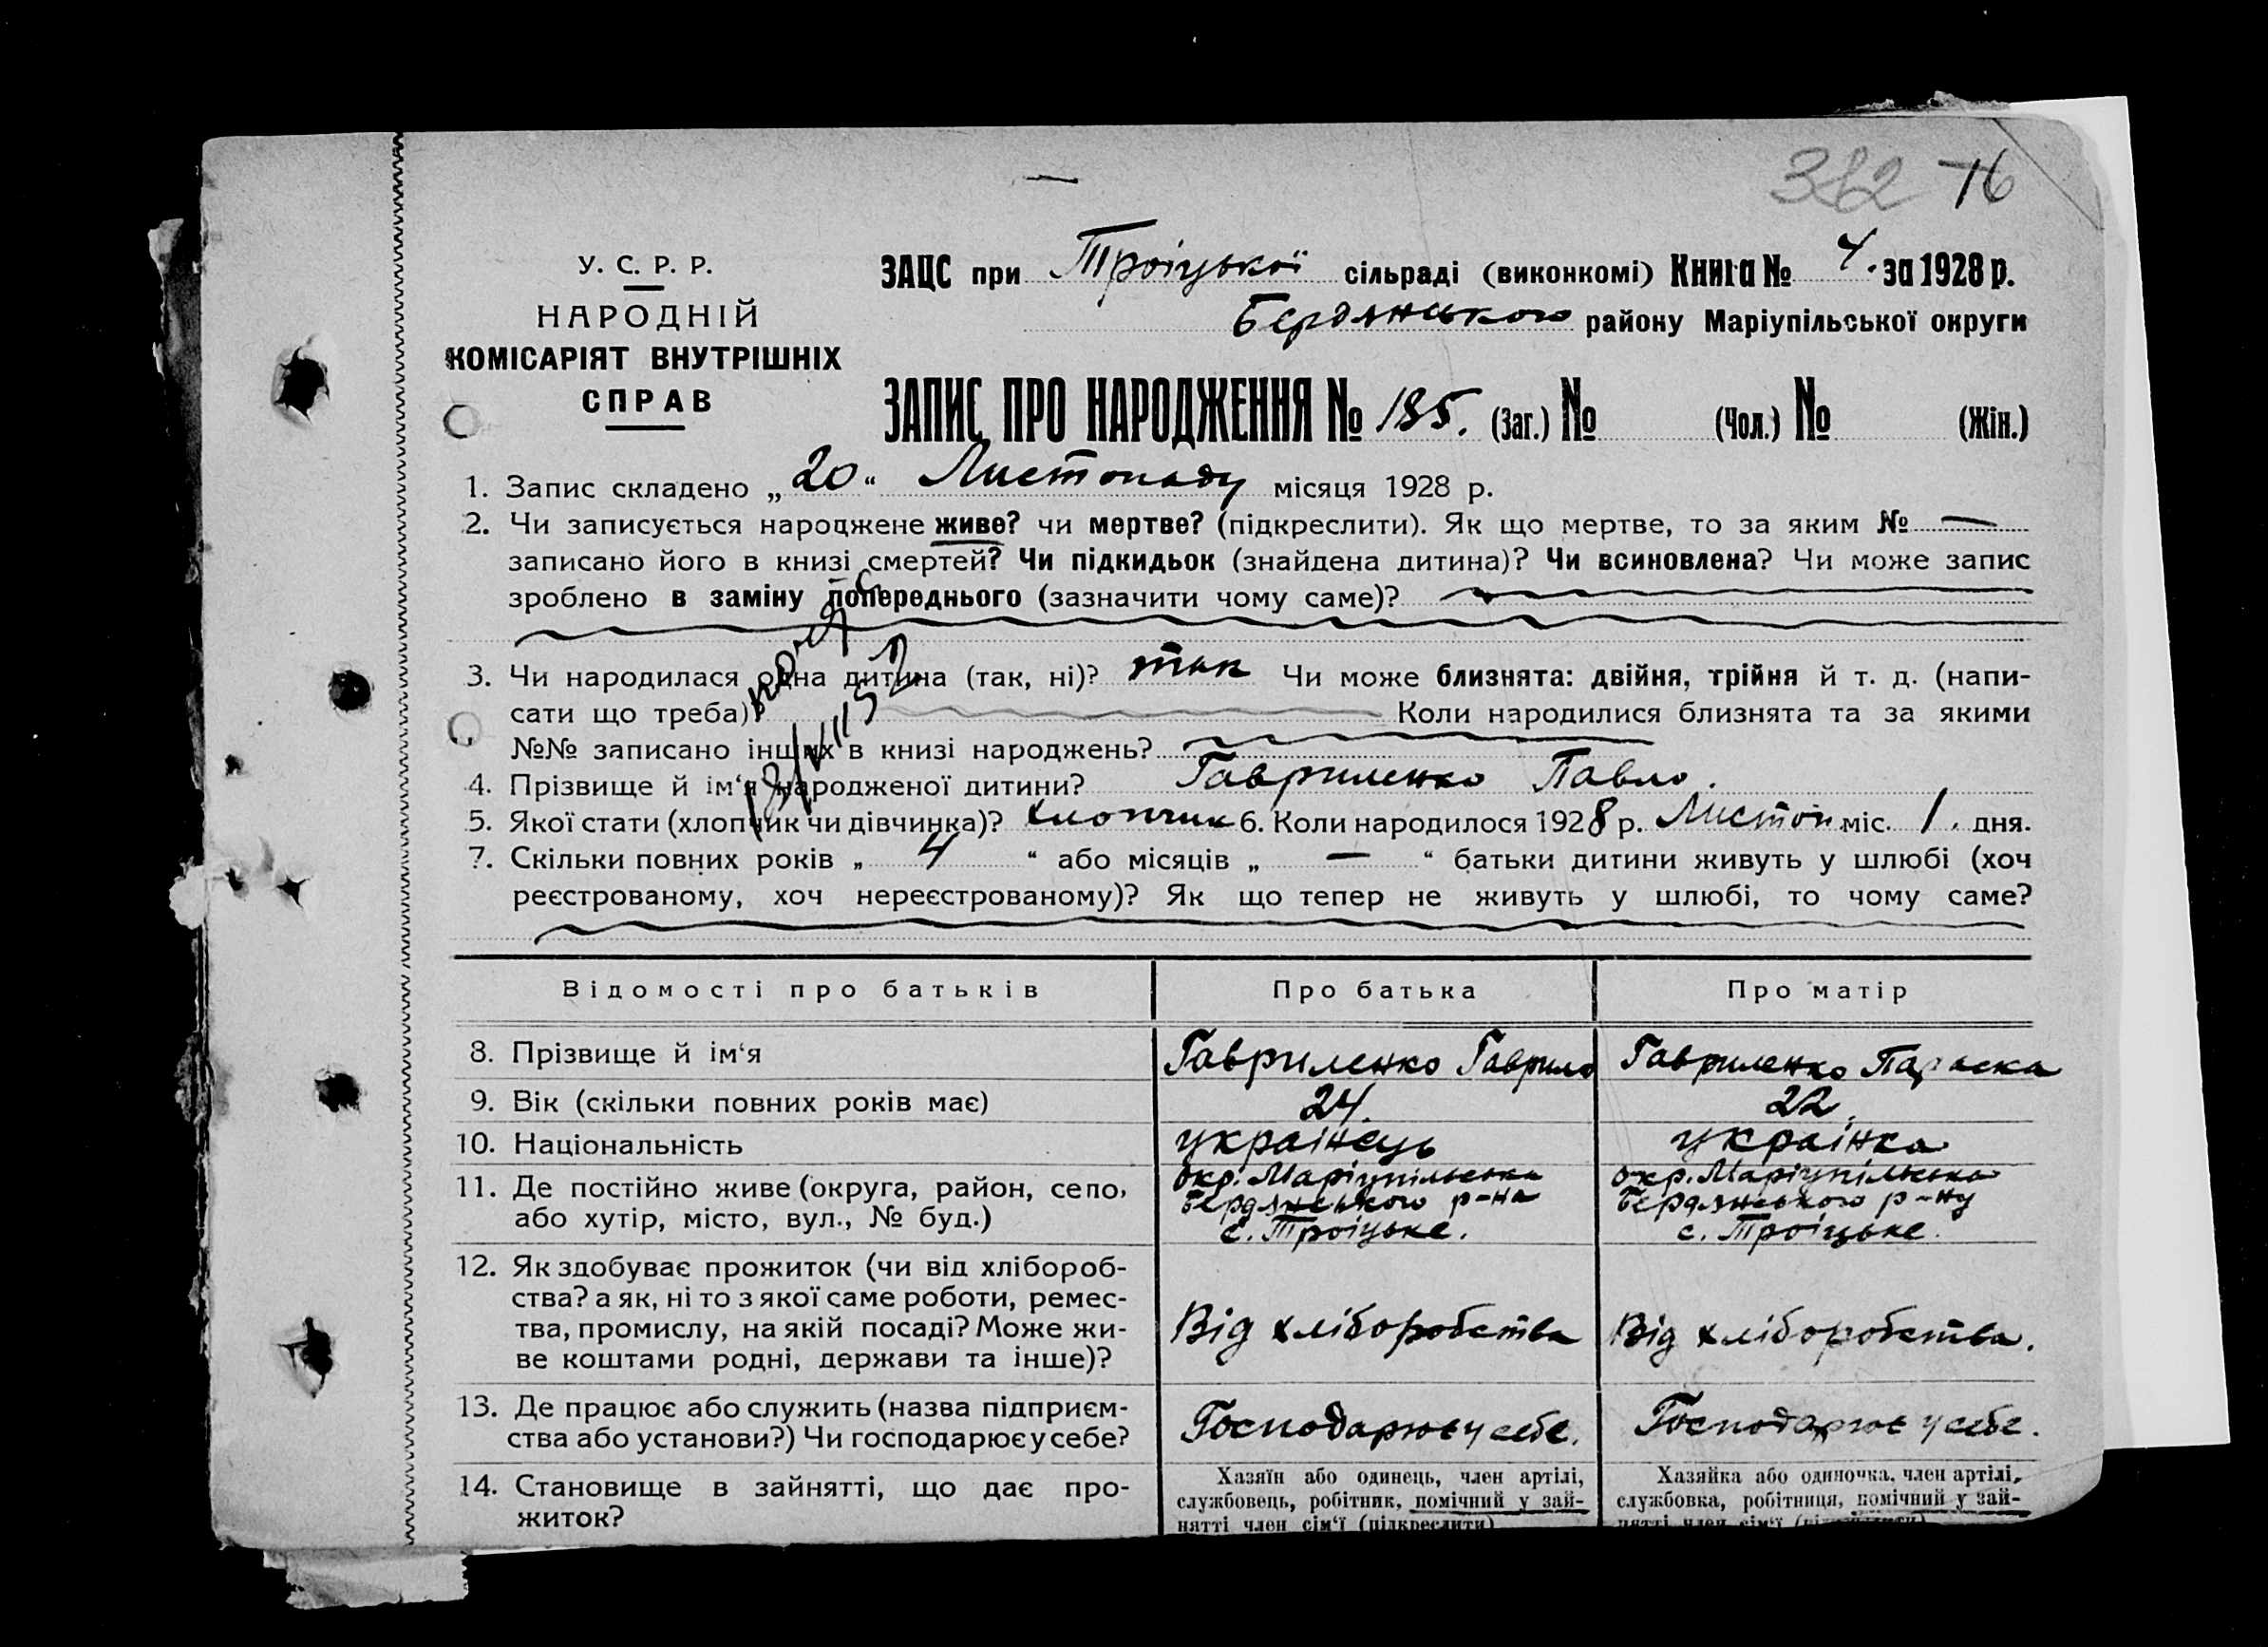 382 16
У. С. Р. Р.
НАРОДНІЙ
КОМІСАРІЯТ ВНУТРІШНІХ
СПРАВ
ЗАЦС при Троіцькоі сільраді (виконкомі) Книга № 4. за 1928 р.
Бердянського району Маріупільської округи
ЗАПИС ПРО НАРОДЖЕННЯ № 185. (Заг.) № (Чол.) № (Жін.)
1. Запис складено „20“ Листопаду місяця 1928 р.
2. Чи записується народжене живе? чи мертве? (підкреслити). Як що мертве, то за яким № —
записано його в книзі смертей? Чи підкидьок (знайдена дитина)? Чи всиновлена? Чи може запис
зроблено в заміну попереднього (зазначити чому саме)?
3. Чи народилася одна дитина (так, ні)? так Чи може близнята: двійня, трійня й т. д. (напи-
сати що треба)? Коли народилися близнята та за якими
№№ записано інших в книзі народжень?
4. Прізвище й ім‘я народженої дитини? Гавриленко Павло.
5. Якої стати (хлопчик чи дівчинка)? Хлопчик 6. Коли народилося 1928 р. Листоп. міс. 1. дня.
7. Скільки повних років „ 4 “ або місяців „ — “ батьки дитини живуть у шлюбі (хоч
реєстрованому, хоч нереєстрованому)? Як що тепер не живуть у шлюбі, то чому саме?
Відомості про батьків Про батька Про матір
8. Прізвище й ім‘я Гавриленко Гаврило Гавриленко Параска
9. Вік (скільки повних років має) 24. 22.
10. Національність українець українка
11. Де постійно живе (округа, район, село, окр. Маріупільська окр. Маріупільська
або хутір, місто, вул., № буд.) Бердянського р-на Бердянського р-ну
с. Троіцьке. с. Троіцьке.
12. Як здобуває прожиток (чи від хлібороб-
ства? а як, ні то з якої саме роботи, ремес-
тва, промислу, на якій посаді? Може жи- Від хліборобства Від хліборобства.
ве коштами родні, держави та інше)?
13. Де працює або служить (назва підприєм-
ства або установи?) Чи господарює у себе? Господарює у себе. Господарює у себе.
14. Становище в зайнятті, що дає про-
житок?
Хазяїн або одинець, член артілі,
службовець, робітник, помічний у зай-
нятті член сім‘ї (підкреслити)
Хазяйка або одиночка, член артілі,
службовка, робітниця, помічний у зай-
нятті член сім‘ї (підкреслити)